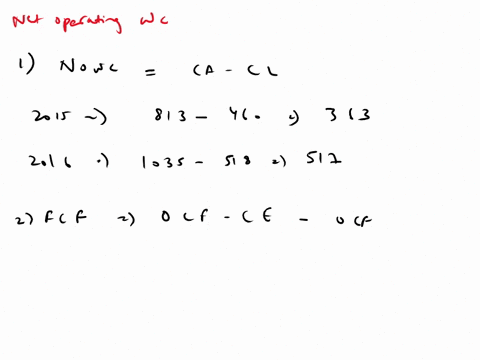 Net operating WC
1) NOWC = CA - CL
2015 => 813 - 460 => 363
2016 => 1035 - 518 => 517
2) FCF => OCF - CE - OCF